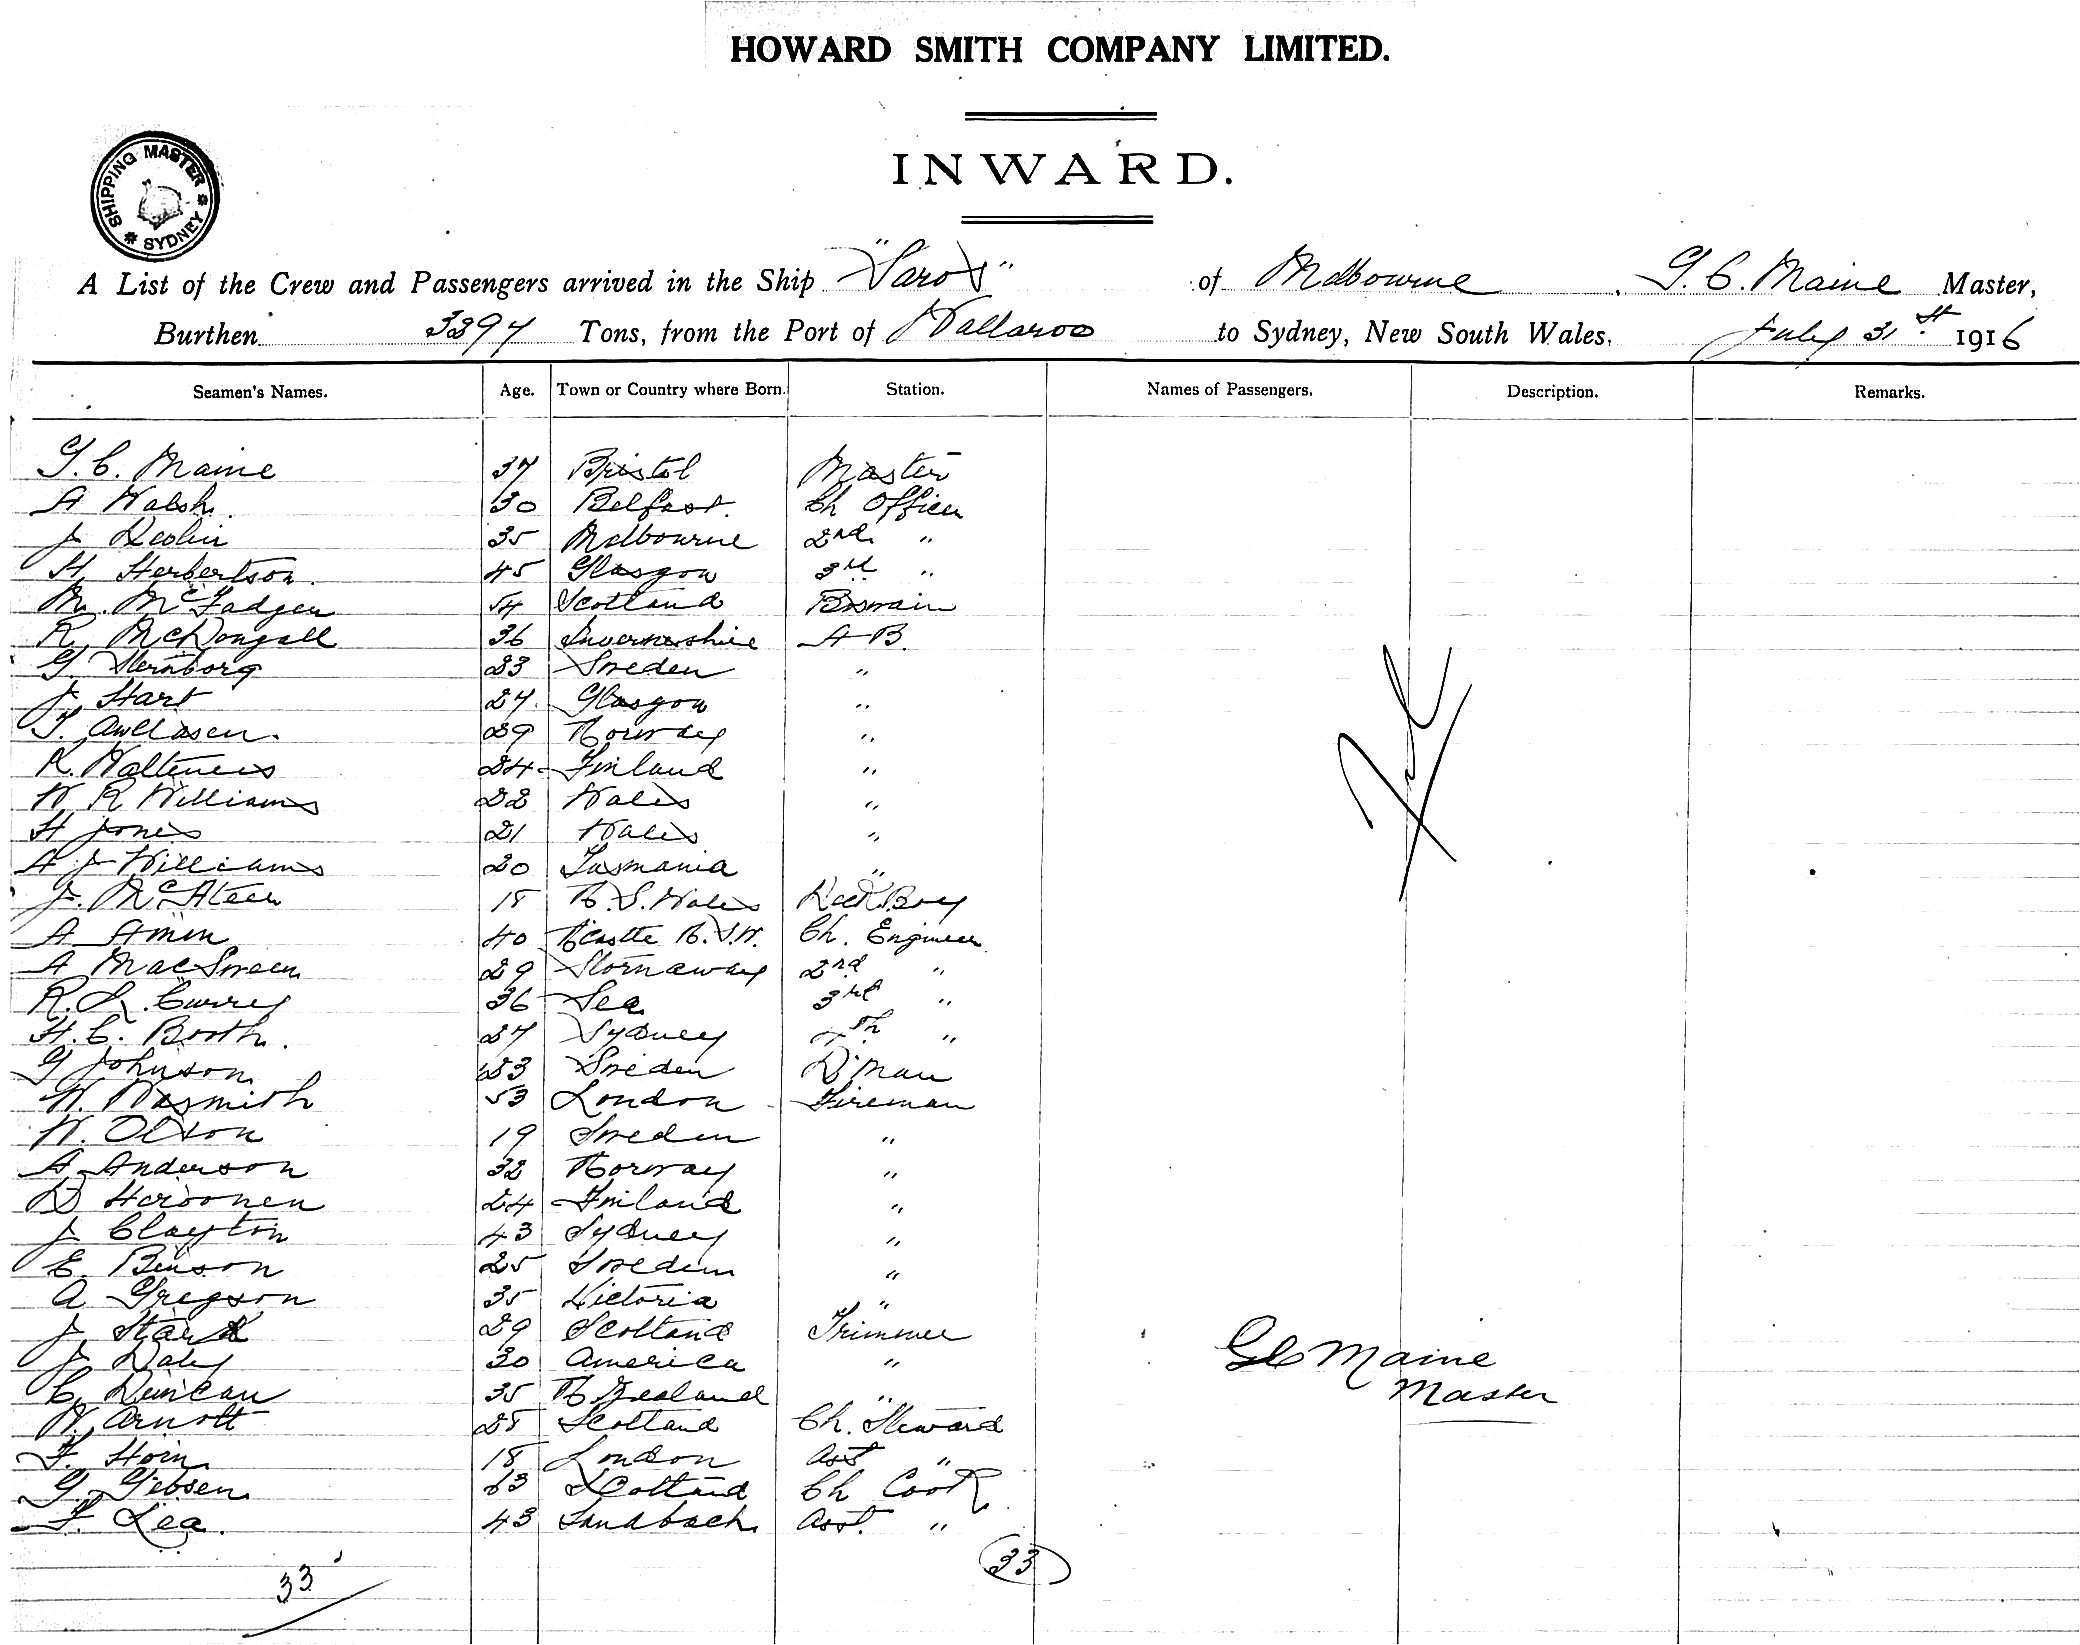 HOWARD SMITH COMPANY LIMITED.
INWARD.
SHIPPING MASTER SYDNEY
A List of the Crew and Passengers arrived in the Ship "Saros" of Melbourne, G. C. Maine Master,
Burthen 3397 Tons, from the Port of Wallaroo to Sydney, New South Wales. July 31st 1916
Seamen's Names. Age. Town or Country where Born. Station. Names of Passengers. Description. Remarks.
G. C. Maine 37 Bristol Master
A Walsh. 30 Belfast. Ch Officer
J Devlin 35 Melbourne 2nd "
H Herbertson. 45 Glasgow 3rd "
M. McFadgen 54 Scotland Boswain
R McDougall 36 Invernesshire A B.
G Sternborg 23 Sweden "
J. Hart 27. Glasgow "
T. 29 Norway "
K. 24 Finland "
W R Williams 22 Wales "
H Jones 21 Wales "
A J Williams 20 Tasmania "
J. McAteer 18 N. S. Wales Deck Boy
A Amen 40 N'Castle N.S.W. Ch. Engineer
A MacSween 29 Stornaway 2nd "
R. L. Currey 36 Sea 3rd "
H. C. Booth. 27 Sydney 4th "
G Johnson 23 Sweden D'man
W. Nasmith 53 London Fireman
W. Olson 19 Sweden "
A Anderson 32 Norway "
D 24 Finland "
J Clayton 43 Sydney "
E. Benson 25 Sweden "
A Gregson 35 Victoria "
J Stark 29 Scotland Trimmer
J Daly 30 America "
C Duncan 35 N. Zealand "
W. Arnott 28 Scotland Ch. Steward
F. Horn 18 London Asst "
G. Gibsen 63 Scotland Ch Cook
F. Lea. 43 Sandbach Asst. "
Nil
GC Maine
Master
33
33